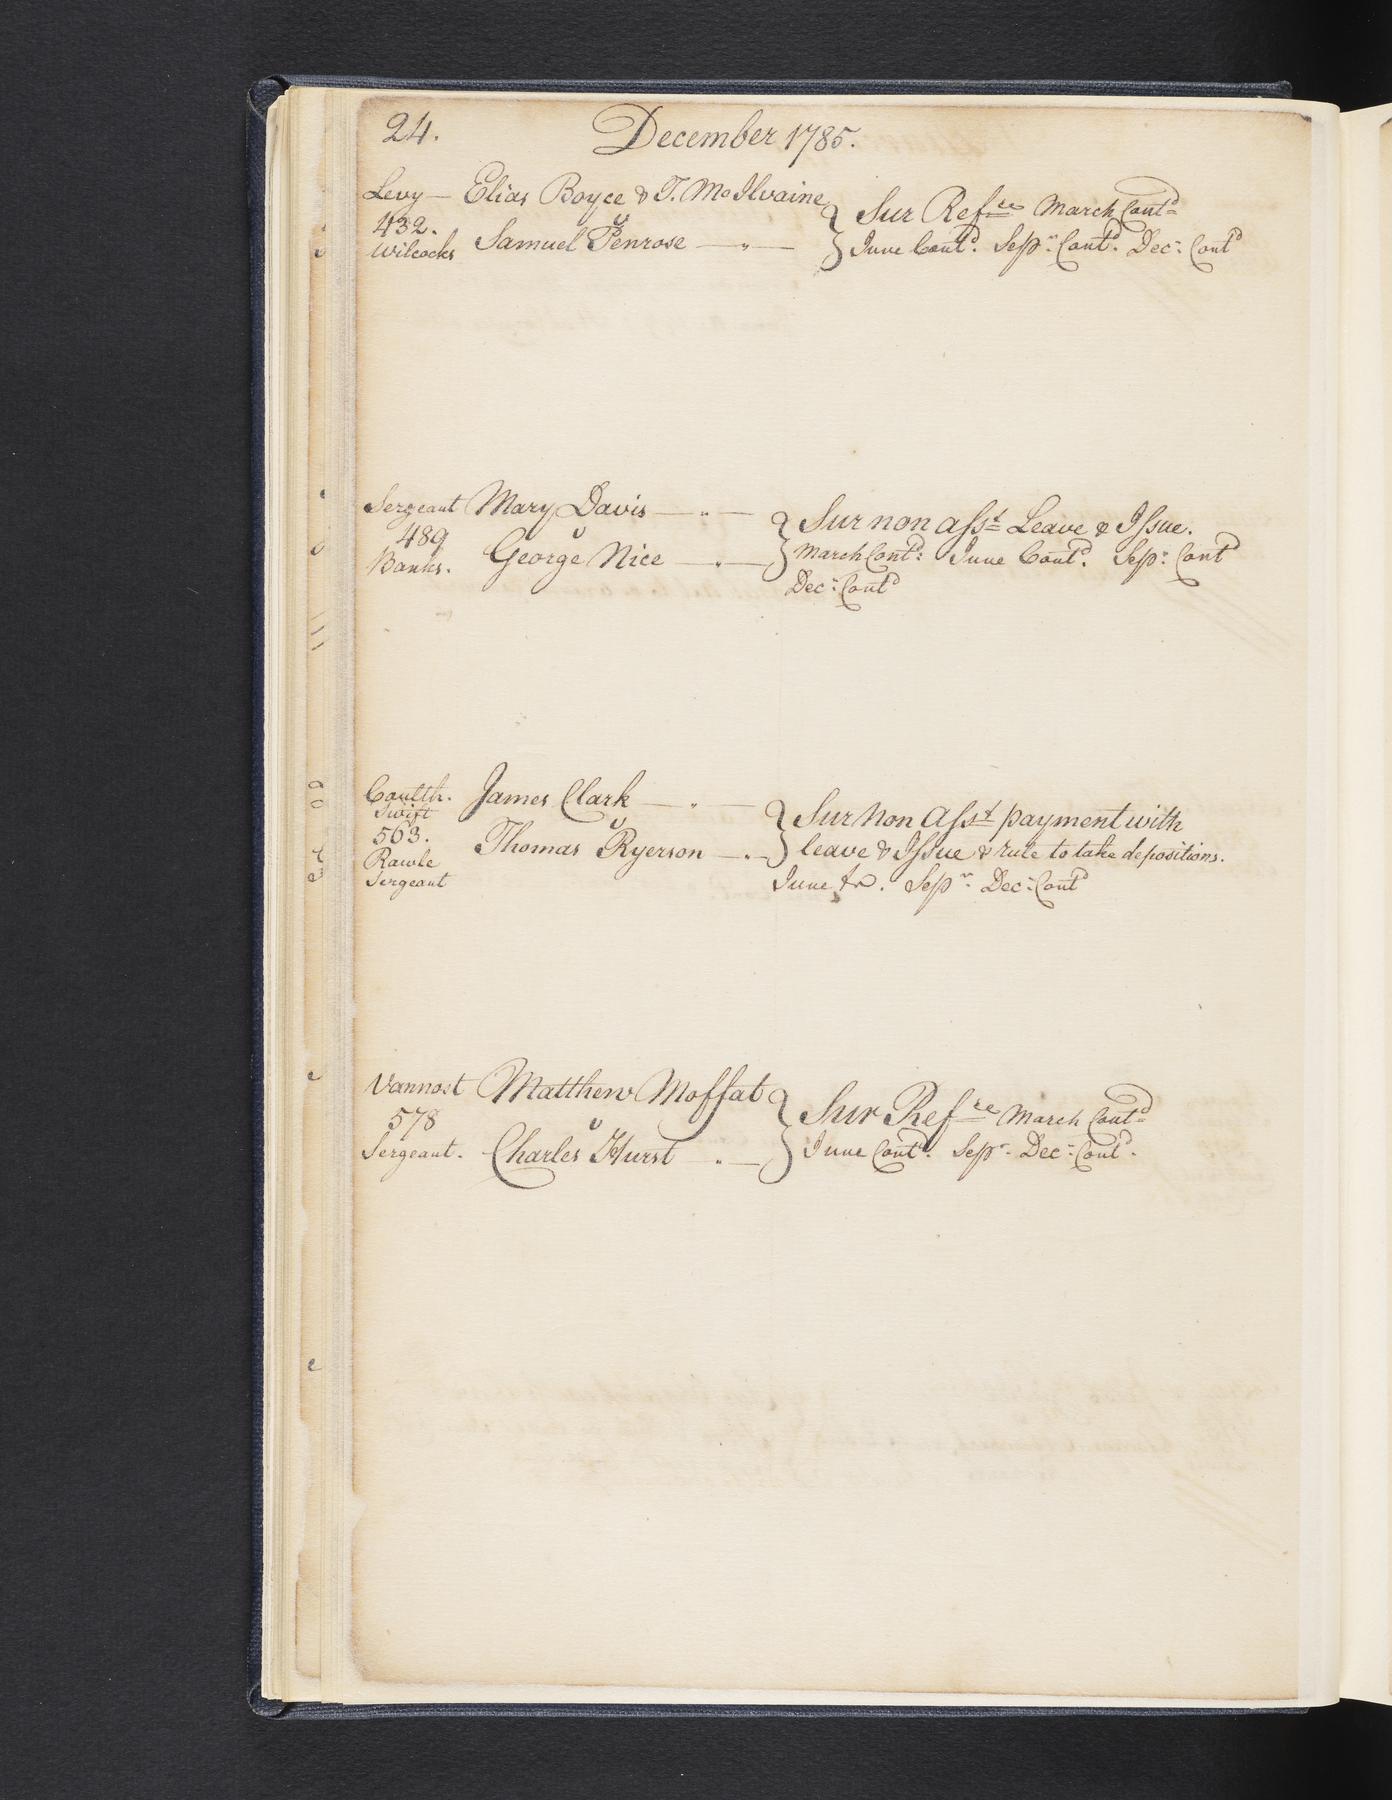 24. December 1785.
Levy — Elias Boyce & T. McIlvaine } Sur Refre March Contd
432. v
Wilcocks Samuel Penrose — " — June Contd. Sepr. Contd. Decr. Contd
Sergeant Mary Davis — " — } Sur non Asst Leave & Issue.
489 v
Banks. George Nice — " — March Contd: June Contd. Sepr. Contd
Decr. Contd
Coulth. James Clark — " — } Sur Non Asst payment with
Swift
563. v
Rawle Thomas Ryerson — " — leave & Issue & rule to take depositions.
Sergeant June . Sepr. Decr. Contd
Vannost Matthew Moffat } Sur Refre March Contd
578 v
Sergeant. Charles Hurst " — June Contd. Sepr. Decr. Contd.